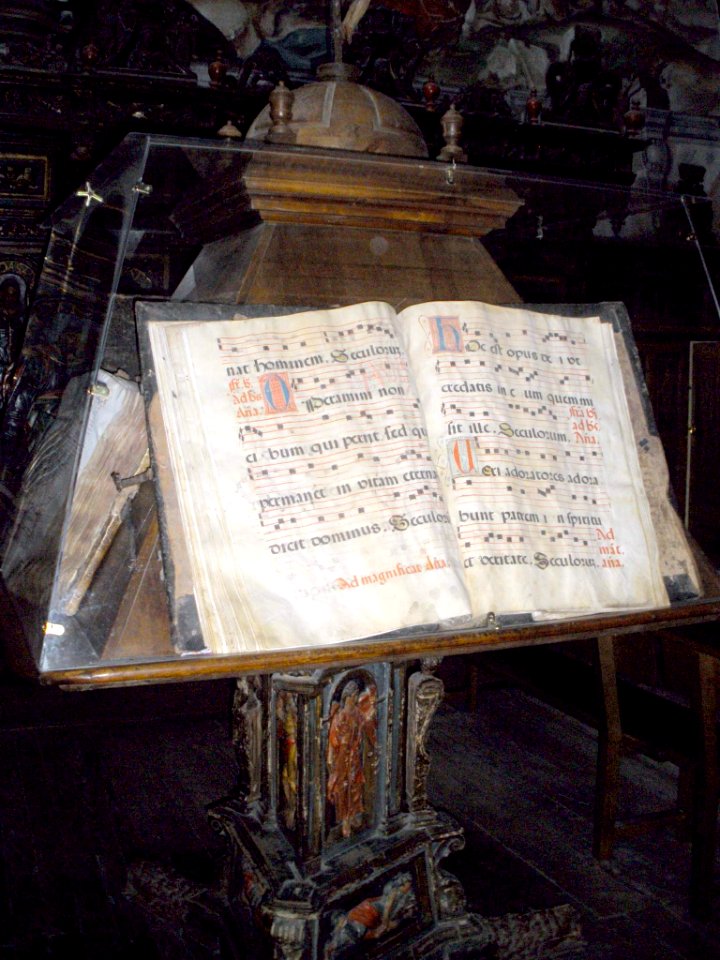 nat hominem. Seculorum.
Operamini non
ci bum qui perit sed qu
permanet in vitam eterna
dicit dominus. Seculor
Ad magnificat Aña.
Hoc est opus de i ut
credatis in e um quem mi
sit ille. Seculorum.
Aña.
Ueri adoratores adora
bunt patrem i n spiritu
Ad
et veritate. Seculorum. aña.